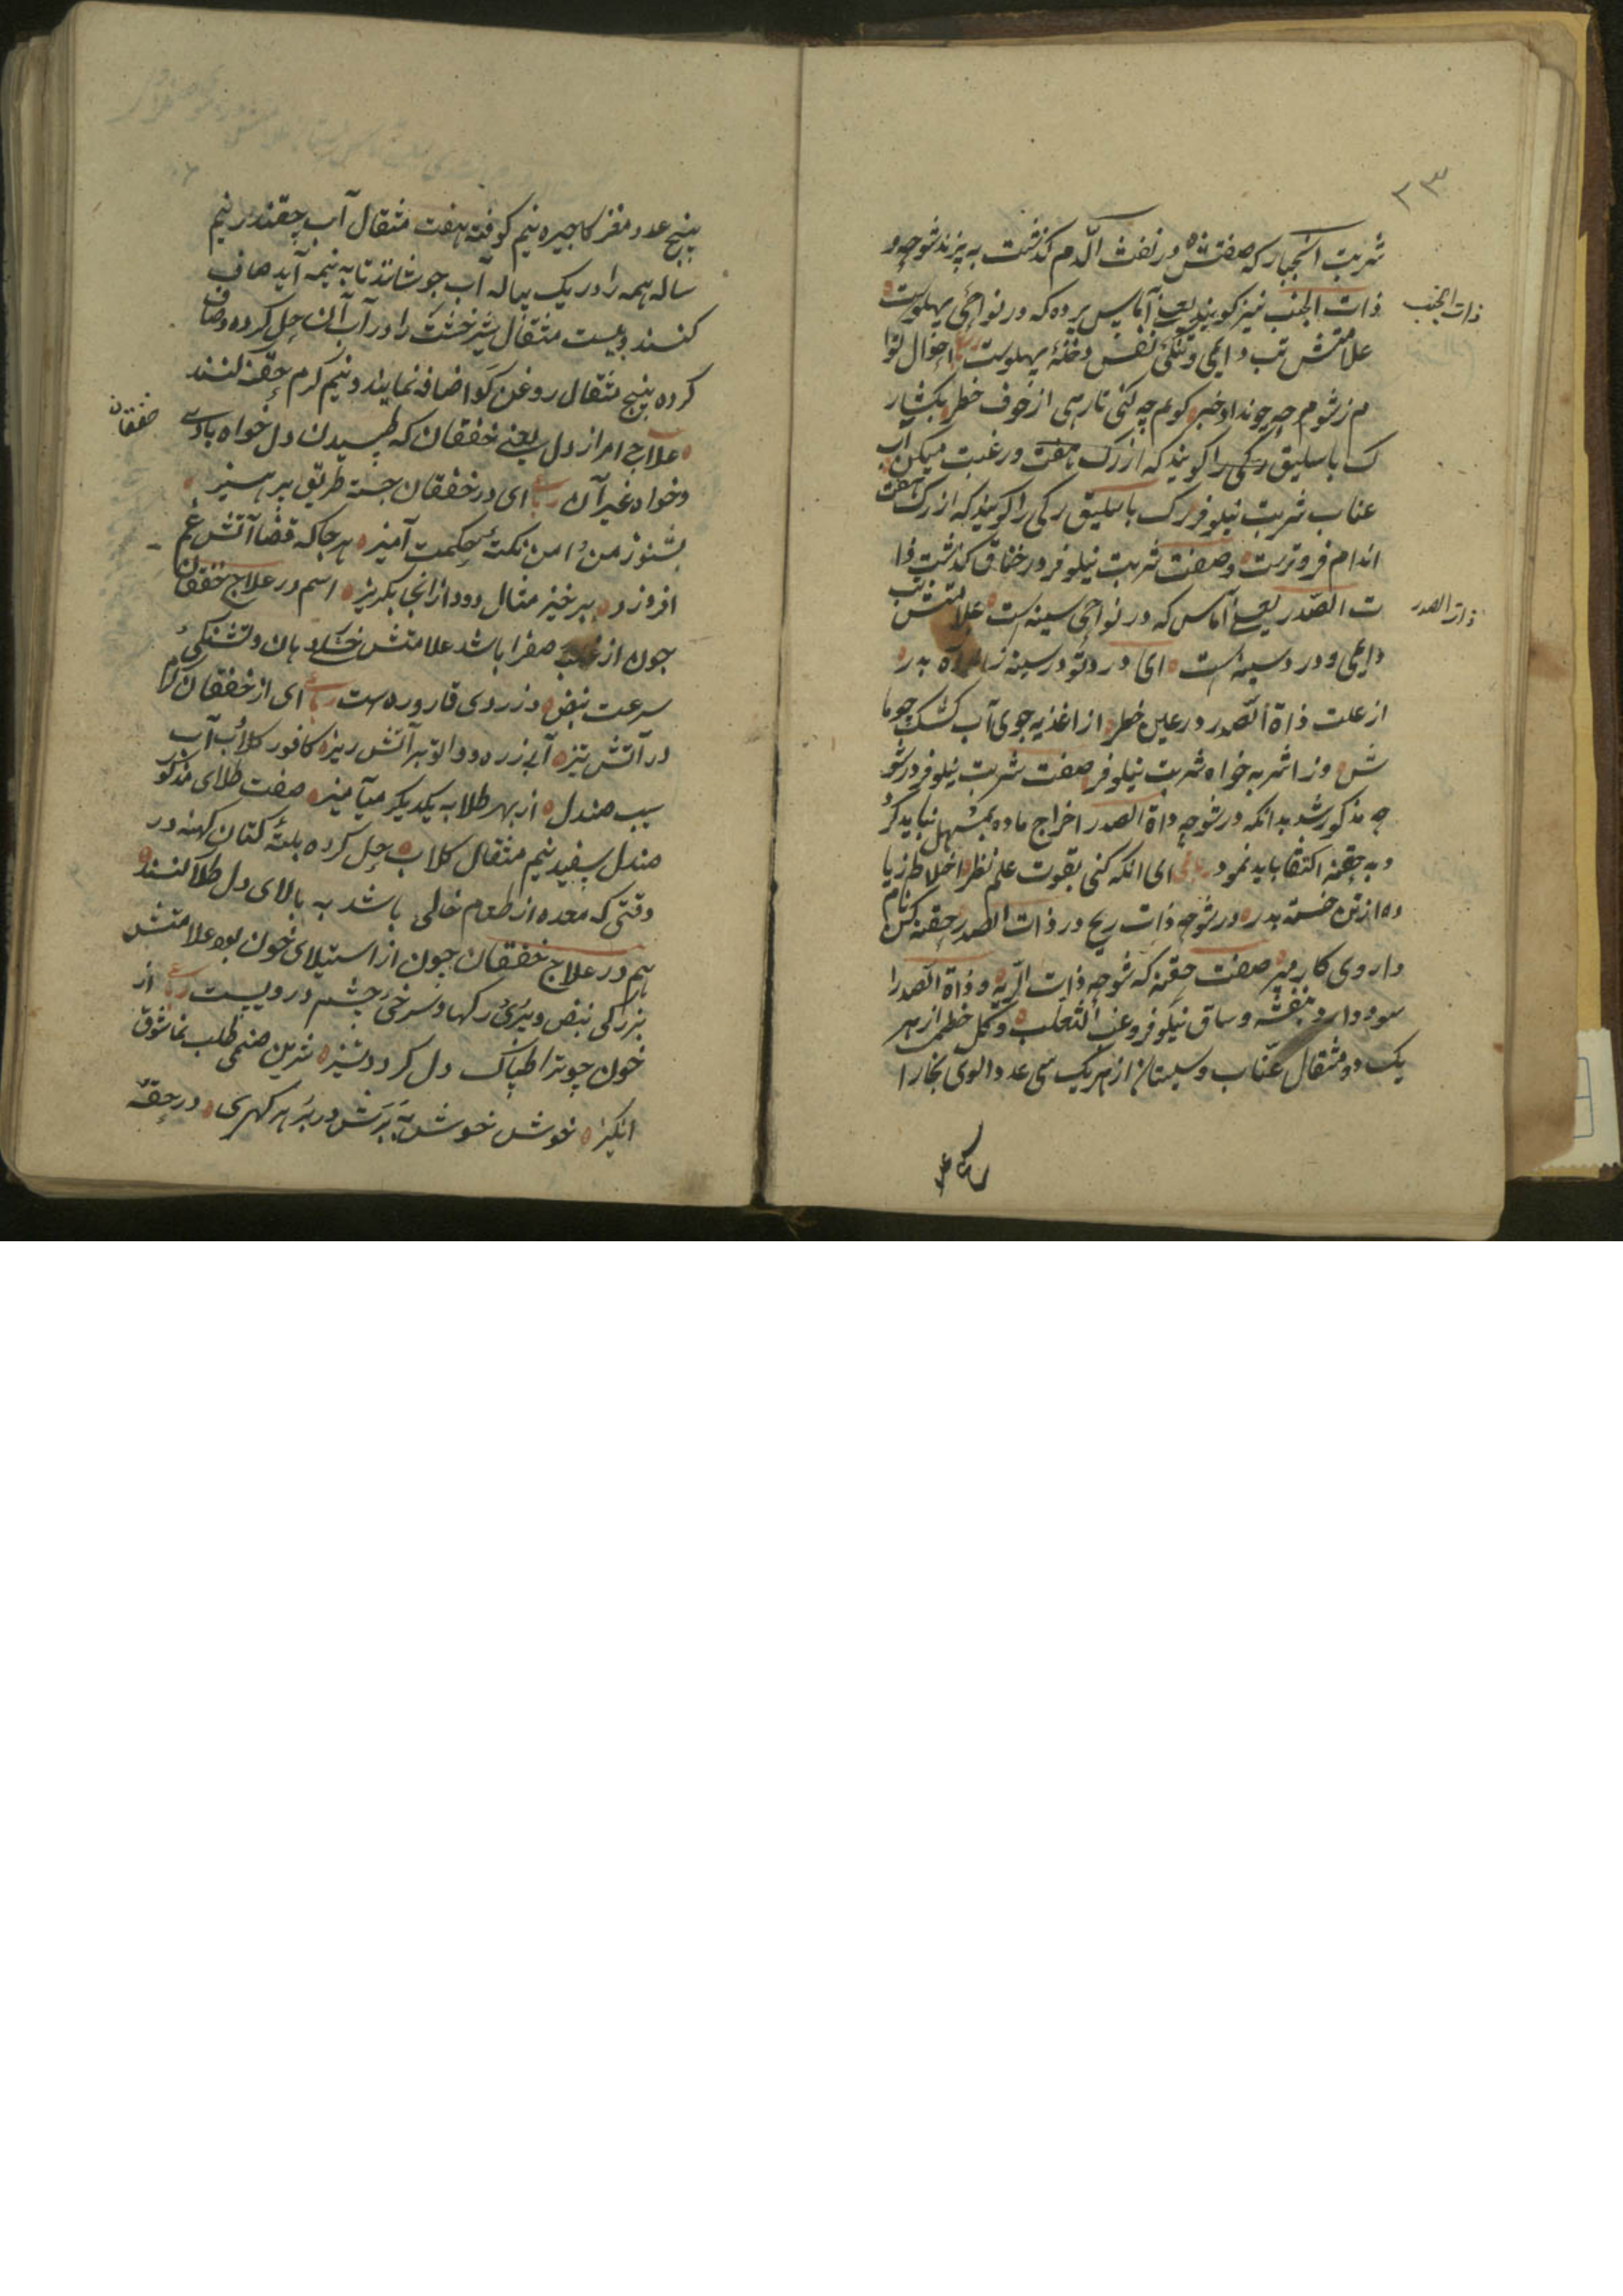 ۲۳
شربت انجبار که صفتش در نفث الدم کذشت به پزند شوجه و
ذات الجنب نیز کویند یعنی آماس پرده که در نواحی پهلوست
ذات الجنب
علامتش تب دایمی و تنکی نفس و خلهٔ پهلوست احوال توا
م زشوم چه چوند او خبر کویم چه کنی تا رهی از خوف خطر بکشار
ک باسلیق رکی را کویند که از رک هفت ورغبت میکن آب
عناب شربت نیلوفر رک باسلیق رکی را کویند که از رک هفت
اندام فروترست و صفت شربت نیلوفر در خناق کذشت ذا
ت الصدر یعنی آماس که در نواحی سینه است علامتش تب
ذات الصدر
دایمی و درد سینه است ای درد تو در سینه ز بدر
از علت ذاة الصدر در عین خطر از اغذیه جوی آب کشک جو ما
ش وز اشربه خواه شربت نیلوفر صفت شربت نیلوفر در شو
جه مذکور شد بدانکه در شوجه و ذاة الصدر اخراج ماده بمسهل نباید کرد
و به حقنه اکتفا باید نمود رباعی ای انکه کنی بقوت علم نظر اخلاط زیا
ده از تن خسته بدر در شوجه ذات ریح در ذات الصدر حقنه کن نام
داروی کار مبر صفت حقنه که شوجه ذات الریه و ذاة الصدر را
سود دارد بنفشه و ساق نیلوفر و عنب الثعلب و کل خطمی از هر
یک دو مثقال عناب و سپستان از هر یک سی عدد الوی بخارا
پنج عدد مغز کاجیره نیم کوفته هفت مثقال آب چقندر نیم
ساله همه را در یک پیاله آب جوشانند تا به نیمه آید صاف
کنند و بیست مثقال شیرخشت را در آب آن حل کرده و صاف
کرده پنج مثقال روغن کو اضافه نمایند و نیم کرم حقنه کنند
علاج امراز دل یعنی خفقان که طپیدن دل خواه بادی
خفقان
و خواه غیر آن رباعی ای در خفقان جسته طریق پرهیز
بشنو ز من این نکتهٔ حکمت آمیز هر جا که قضا آتش غم
افروزد بر خیز مثال دود از انجا بکریز اسم در علاج خفقان
چون از غلبه صفرا باشد علامتش خشکی دهان و تشنکی
سرعت نبض و زردی قاروره است رباعی ای از خفقان
در آتش تیز آبی زره دوا تو بر آتش ریز کافور کلاب آب
سیب صندل از بهر طلا به یکدیکر میآمیز صفت طلای مذکور
صندل سفید نیم مثقال کلاب حل کرده بلتهٔ کتان کهنه در
وقتی که معده از طعام خالی باشد به بالای دل طلا کنند
هم در علاج خفقان چون از استیلای خون بود علامتش
بزرکی نبض و پری رکها و سرخی چشم و رویست رباعی از
خون چو ترا طپاک دل کردد تیز شیرین صنمی طلب نما شوق
انکیز خوش خوش به برش در بر هر کهری در حقه